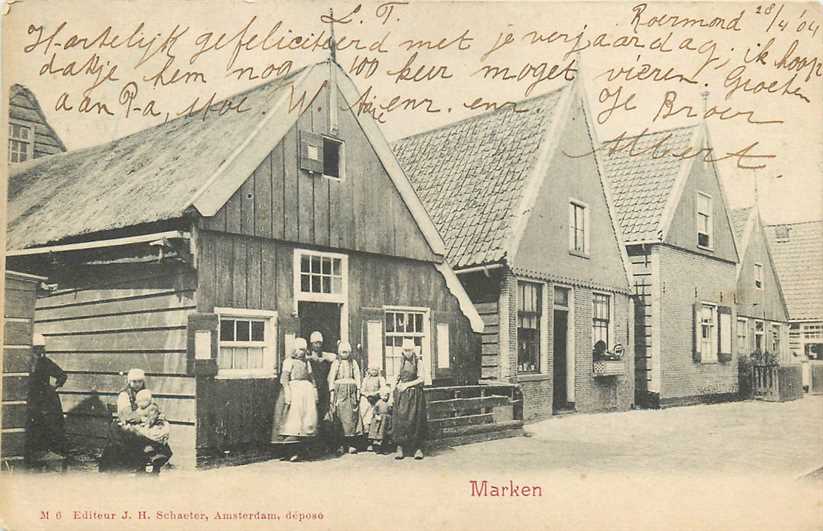 L. T.
Roermond 28/4 '04
Hartelijk gefeliciteerd met je verjaardag, ik hoop
dat je hem nog 100 keer moogt vieren. Groeten
aan Pa, Moe. W. enz. enz. Je Broer
Albert
Marken
M 6 Editeur J. H. Schaefer, Amsterdam, déposé